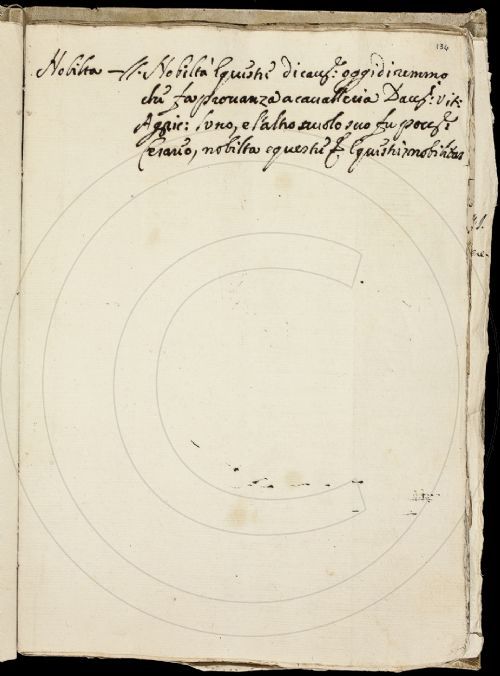 134
Nobilta —//. Nobiltà Equestre di cau.: oggi diremmo
che fa prouanza a caualleria Dau.: Vit:
Agric: l'uno, e l'altro auolo suo fu
Cesareo, nobilta equestre equestris nobilitas